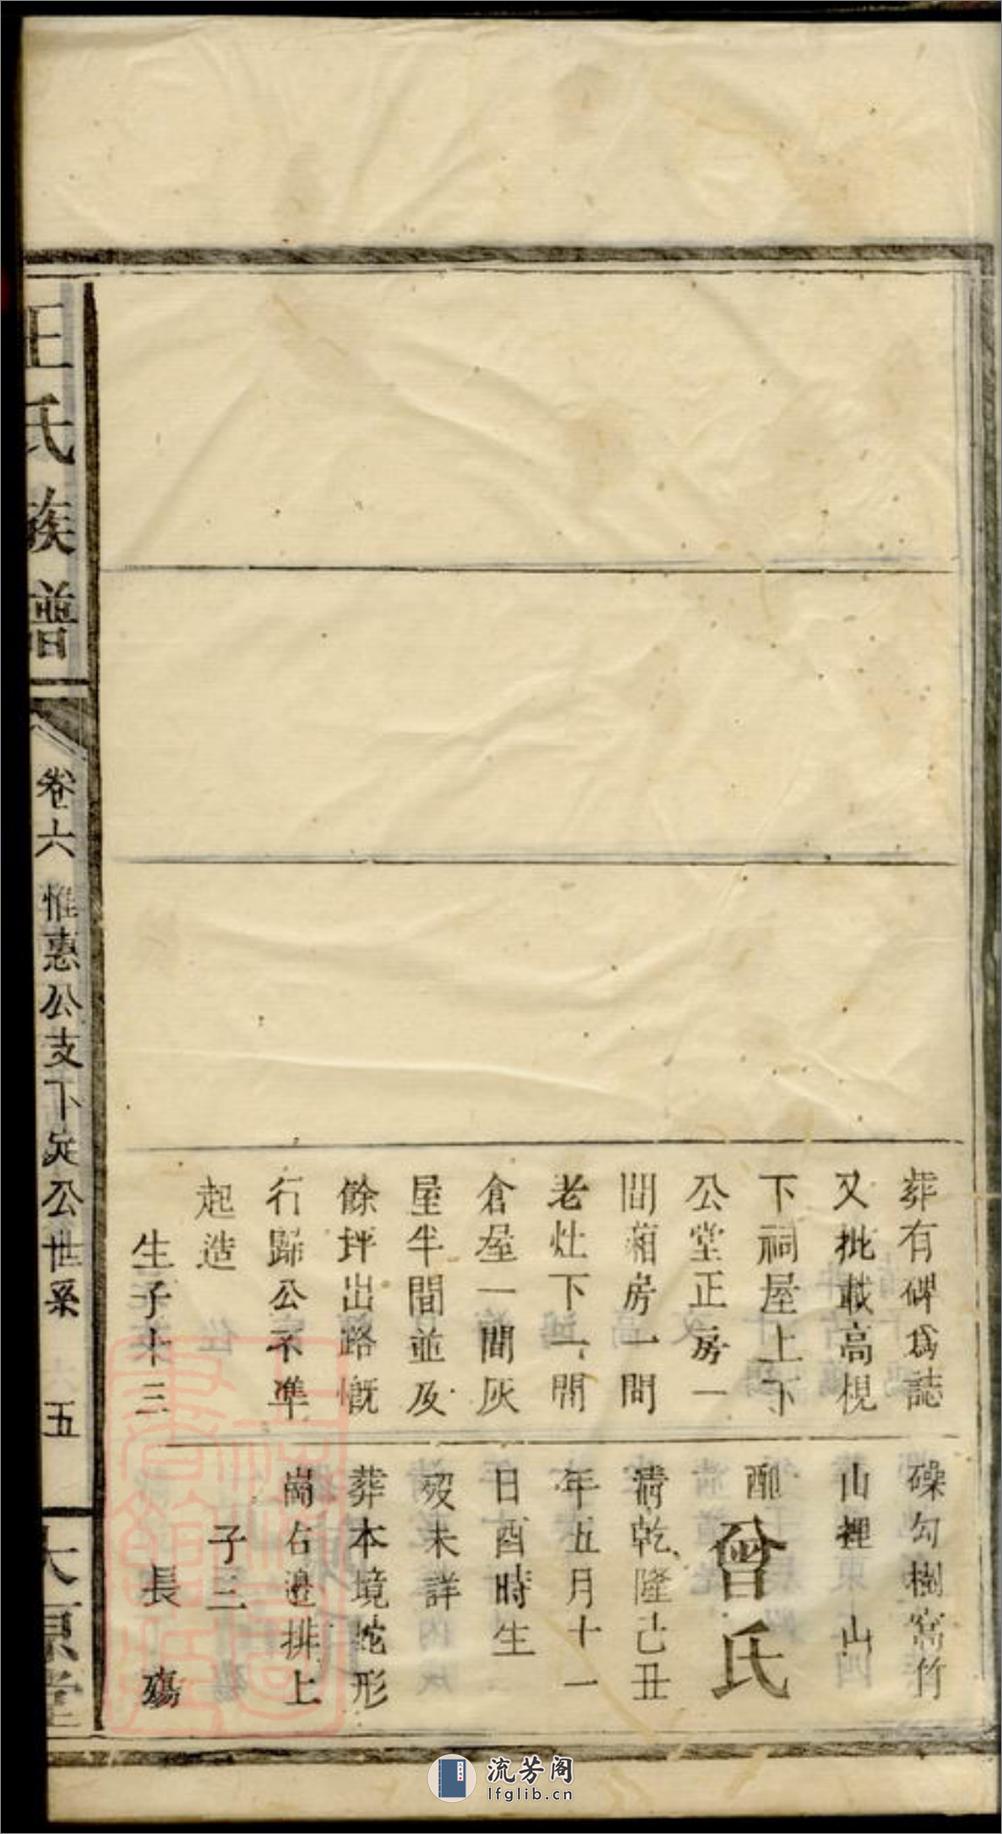 葬有碑爲誌
又批載高梘
下祠屋上下
公堂正房一
間廂房一間
老灶下一間
倉屋一間灰
屋半間並及
餘坪出路慨
行歸公不準
起造
生子十三
磜勾樹窩竹
山裡 山
配曾氏
清乾隆己丑
年五月十一
日酉時生
歿未詳
葬本境蛇形
崗右邊排上
子三
長 殤
王氏族譜 卷六 惟惠公支下 公世系 五 太原堂
流芳阁
lfglib.cn